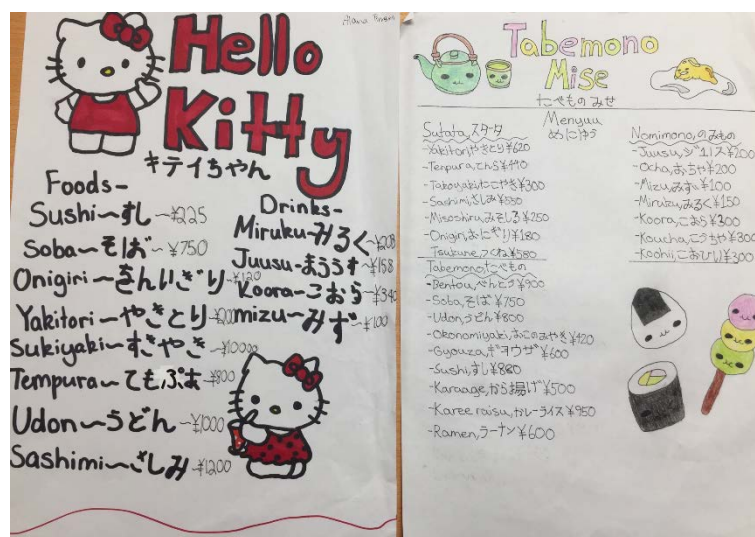 Hello
Kitty
キテイちゃん
Foods-
Sushi~すし~¥225
Soba~そば~¥750
Onigiri~きんいぎり~¥120
Yakitori~やきとり~¥200
Sukiyaki~すぎやき~¥10000
Tempura~てもぷあ~¥800
Udon~うどん~¥1000
Sashimi~ざしみ~¥1200
Drinks-
Miruku-みるく~¥208
Juusu-まううす~¥158
Koora~こおら~¥340
mizu~みず~¥100
Tabemono
Mise
たべもの みせ
Menyuu
めにゆう
Sutata,スタータ
-Yakitori,やきとり¥620
-Tenpura,てんら
-Takoyaki,たこやき¥300
-Sashimi,さしみ¥550
-Misoshiru,みそしる¥250
-Onigiri,おにぎり¥180
Tsukune,つくね¥580
Tabemono,たべもの
-Bentou,べんとう¥900
-Soba,そば¥750
-Udon,うどん¥800
-Okonomiyaki,おこのみやき¥420
-Gyouza,ギヨウザ¥600
-Sushi,すし¥880
-Karaage,から揚げ¥500
-Karee raisu,カレーライス¥950
-Ramen,ラーナン¥600
Nomimono,のみもの
-Juusu,ジユス¥200
-Ocha,おちや¥200
-Mizu,みず¥100
-Miruku,みるく¥150
-Koora,こおら¥300
-Koucha,こうちや¥300
-Koohii,こおひり¥300